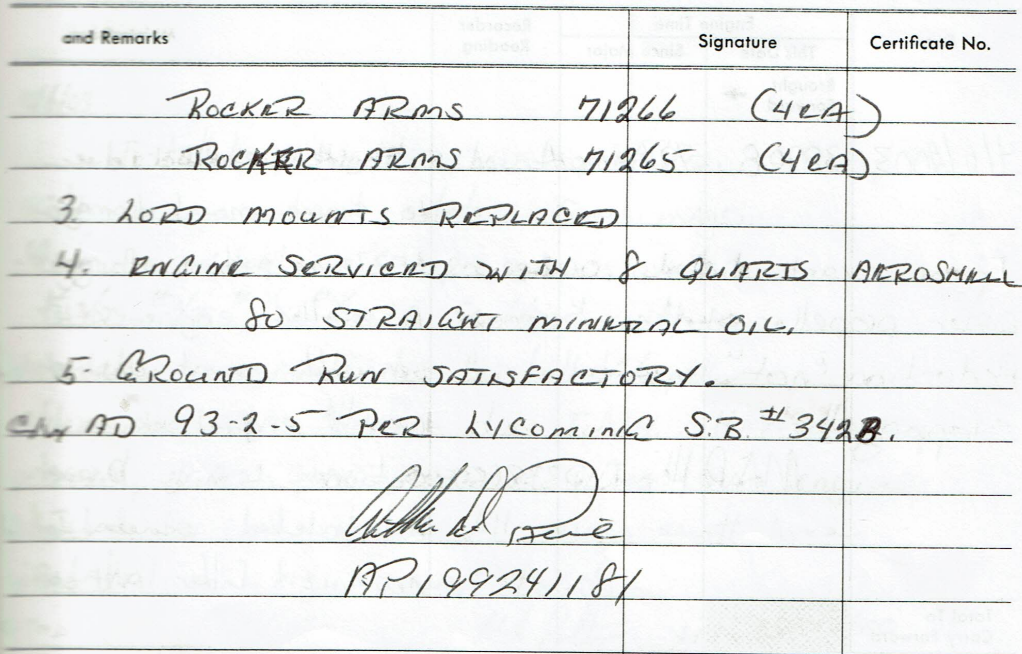 and Remarks Signature Certificate No.
ROCKER ARMS 71266 (4EA)
ROCKER ARMS 71265 (4EA)
3. LORD MOUNTS REPLACED
4. ENGINE SERVICED WITH 8 QUARTS AEROSHELL
80 STRAIGHT MINERAL OIL.
5- GROUND RUN SATISFACTORY.
AD 93-2-5 PER LYCOMING S.B. #342
AP199241181